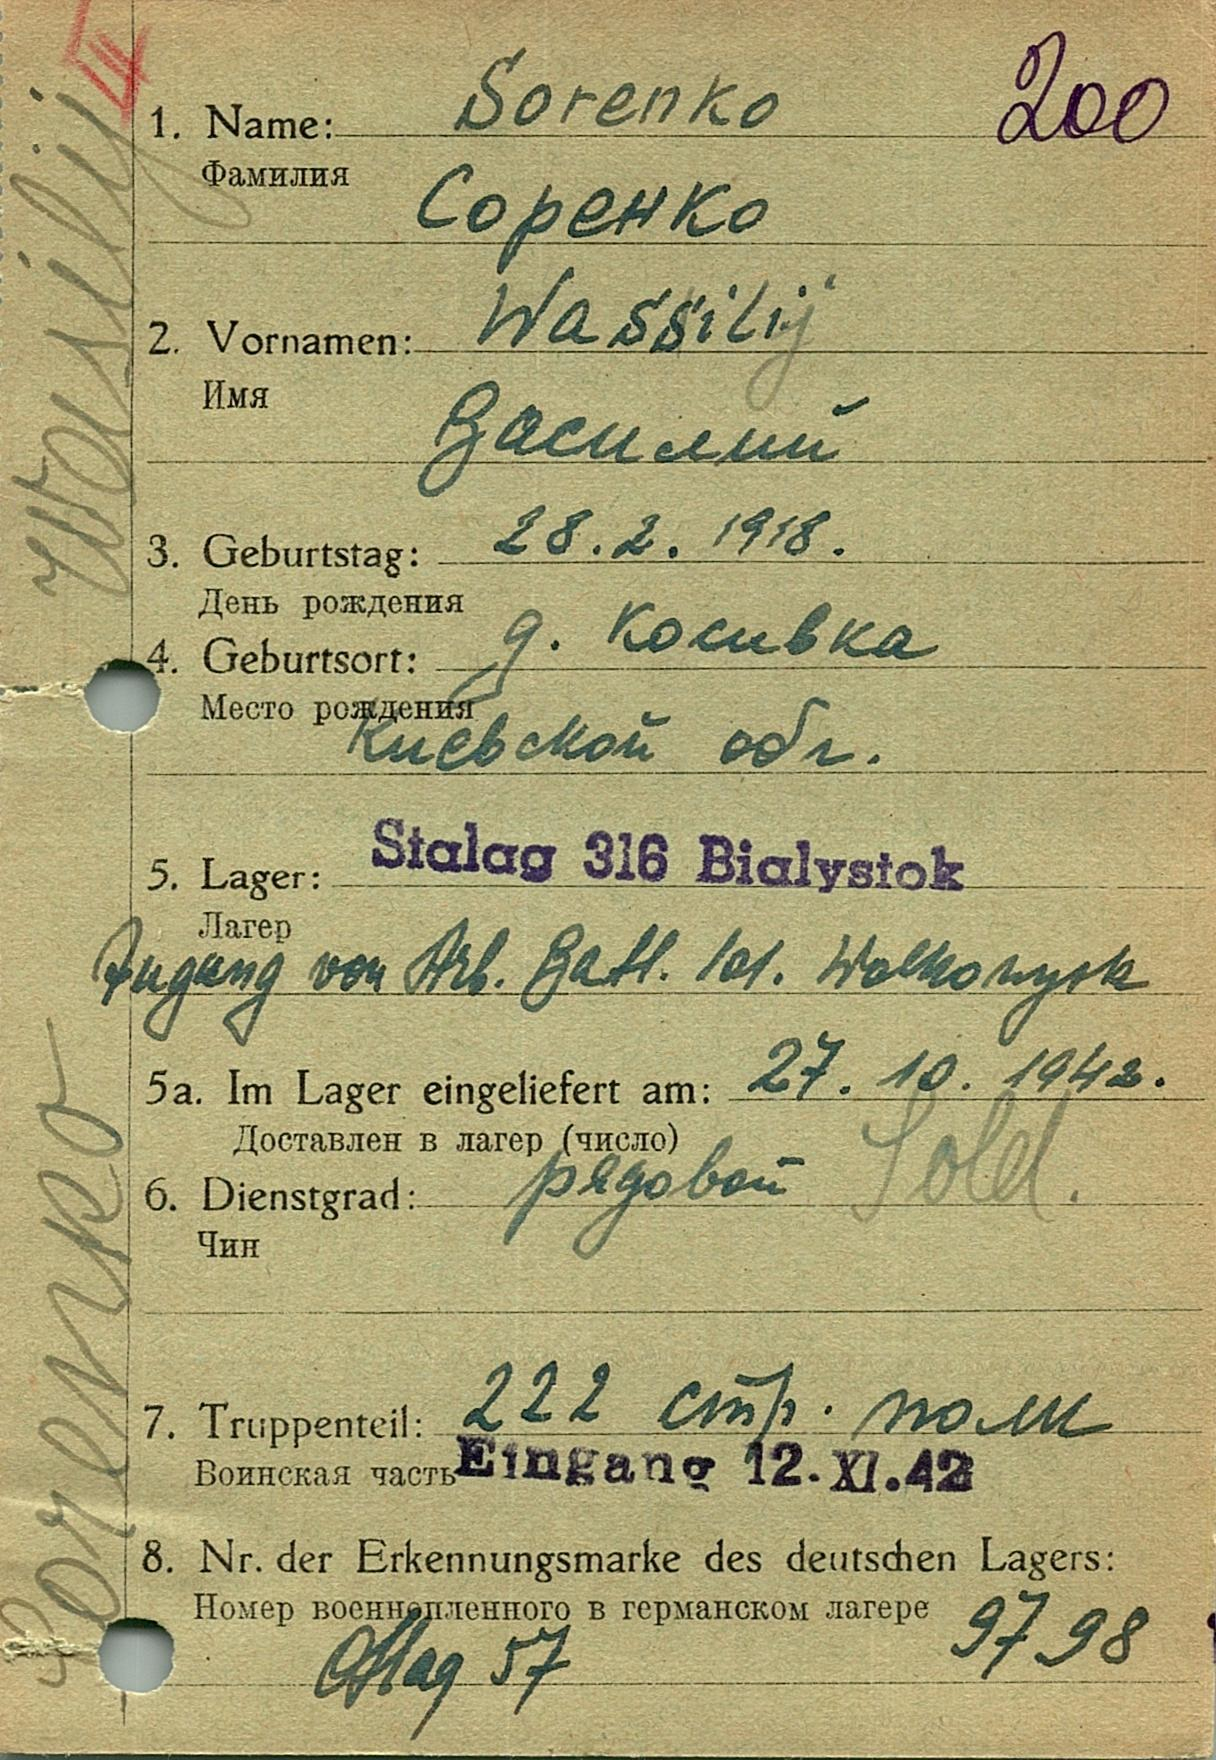 III
200
1. Name: Sorenko
Фамилия
Соренко
2. Vornamen: Wassilij
Имя
Василий
3. Geburtstag: 28.2.1918.
День рождения
4. Geburtsort: д. Косивка
Место рождения
Киевской обл.
5. Lager: Stalag 316 Bialystok
Лагер
Zugang von Arb. Batl. 101. Wolkowysk
5a. Im Lager eingeliefert am: 27. 10. 1942.
Доставлен в лагер (число)
6. Dienstgrad: рядовой Sold.
Чин
7. Truppenteil: 222 стр. полк
Воинская часть Eingang 12. XI. 42
8. Nr. der Erkennungsmarke des deutschen Lagers:
Номер военнопленного в германском лагере 9798
Stlag 57
Sorenko Wasilij